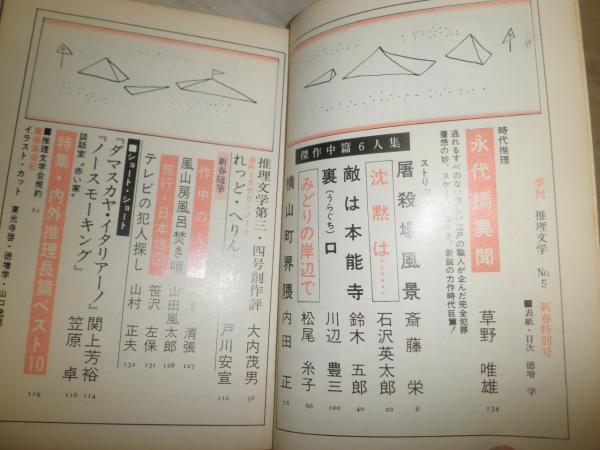 季刊 推理文学 No.5 新春特別号
■表紙・目次 徳増 学
時代推理
永代橋異聞 草野唯雄 134
逃れるすべのない 江戸の職人が企んだ完全犯罪
着想の妙、スケ 新鋭の力作時代巨篇!
傑作中篇6人集
ストリッ
屠殺場風景 斎藤 栄 8
沈黙は…… 石沢英太郎 20
敵は本能寺 鈴木五郎 40
裏(うらぐち)口 川辺豊三 100
みどりの岸辺で 松尾糸子 66
横山町界隈 内田 正 56
推理文学第三・四号創作評 大内茂男 58
れっど・へりん 戸川安宣 110
新春随筆
作中の人 清張 127
風山房風呂焚き唄 山田風太郎 128
旅行・日本地図 笹沢左保 131
テレビの犯人探し 山村正夫 132
■ショート・ショート
『ダマスカヤ・イタリアーノ』 関上芳裕 114
『ノースモーキング』 笠原 卓 116
談話室・赤い家
特集・内外推理長篇ベスト10 119
■推理文学会規約 62
■編集後記
イラスト・カット 東光寺啓・徳増学・山口